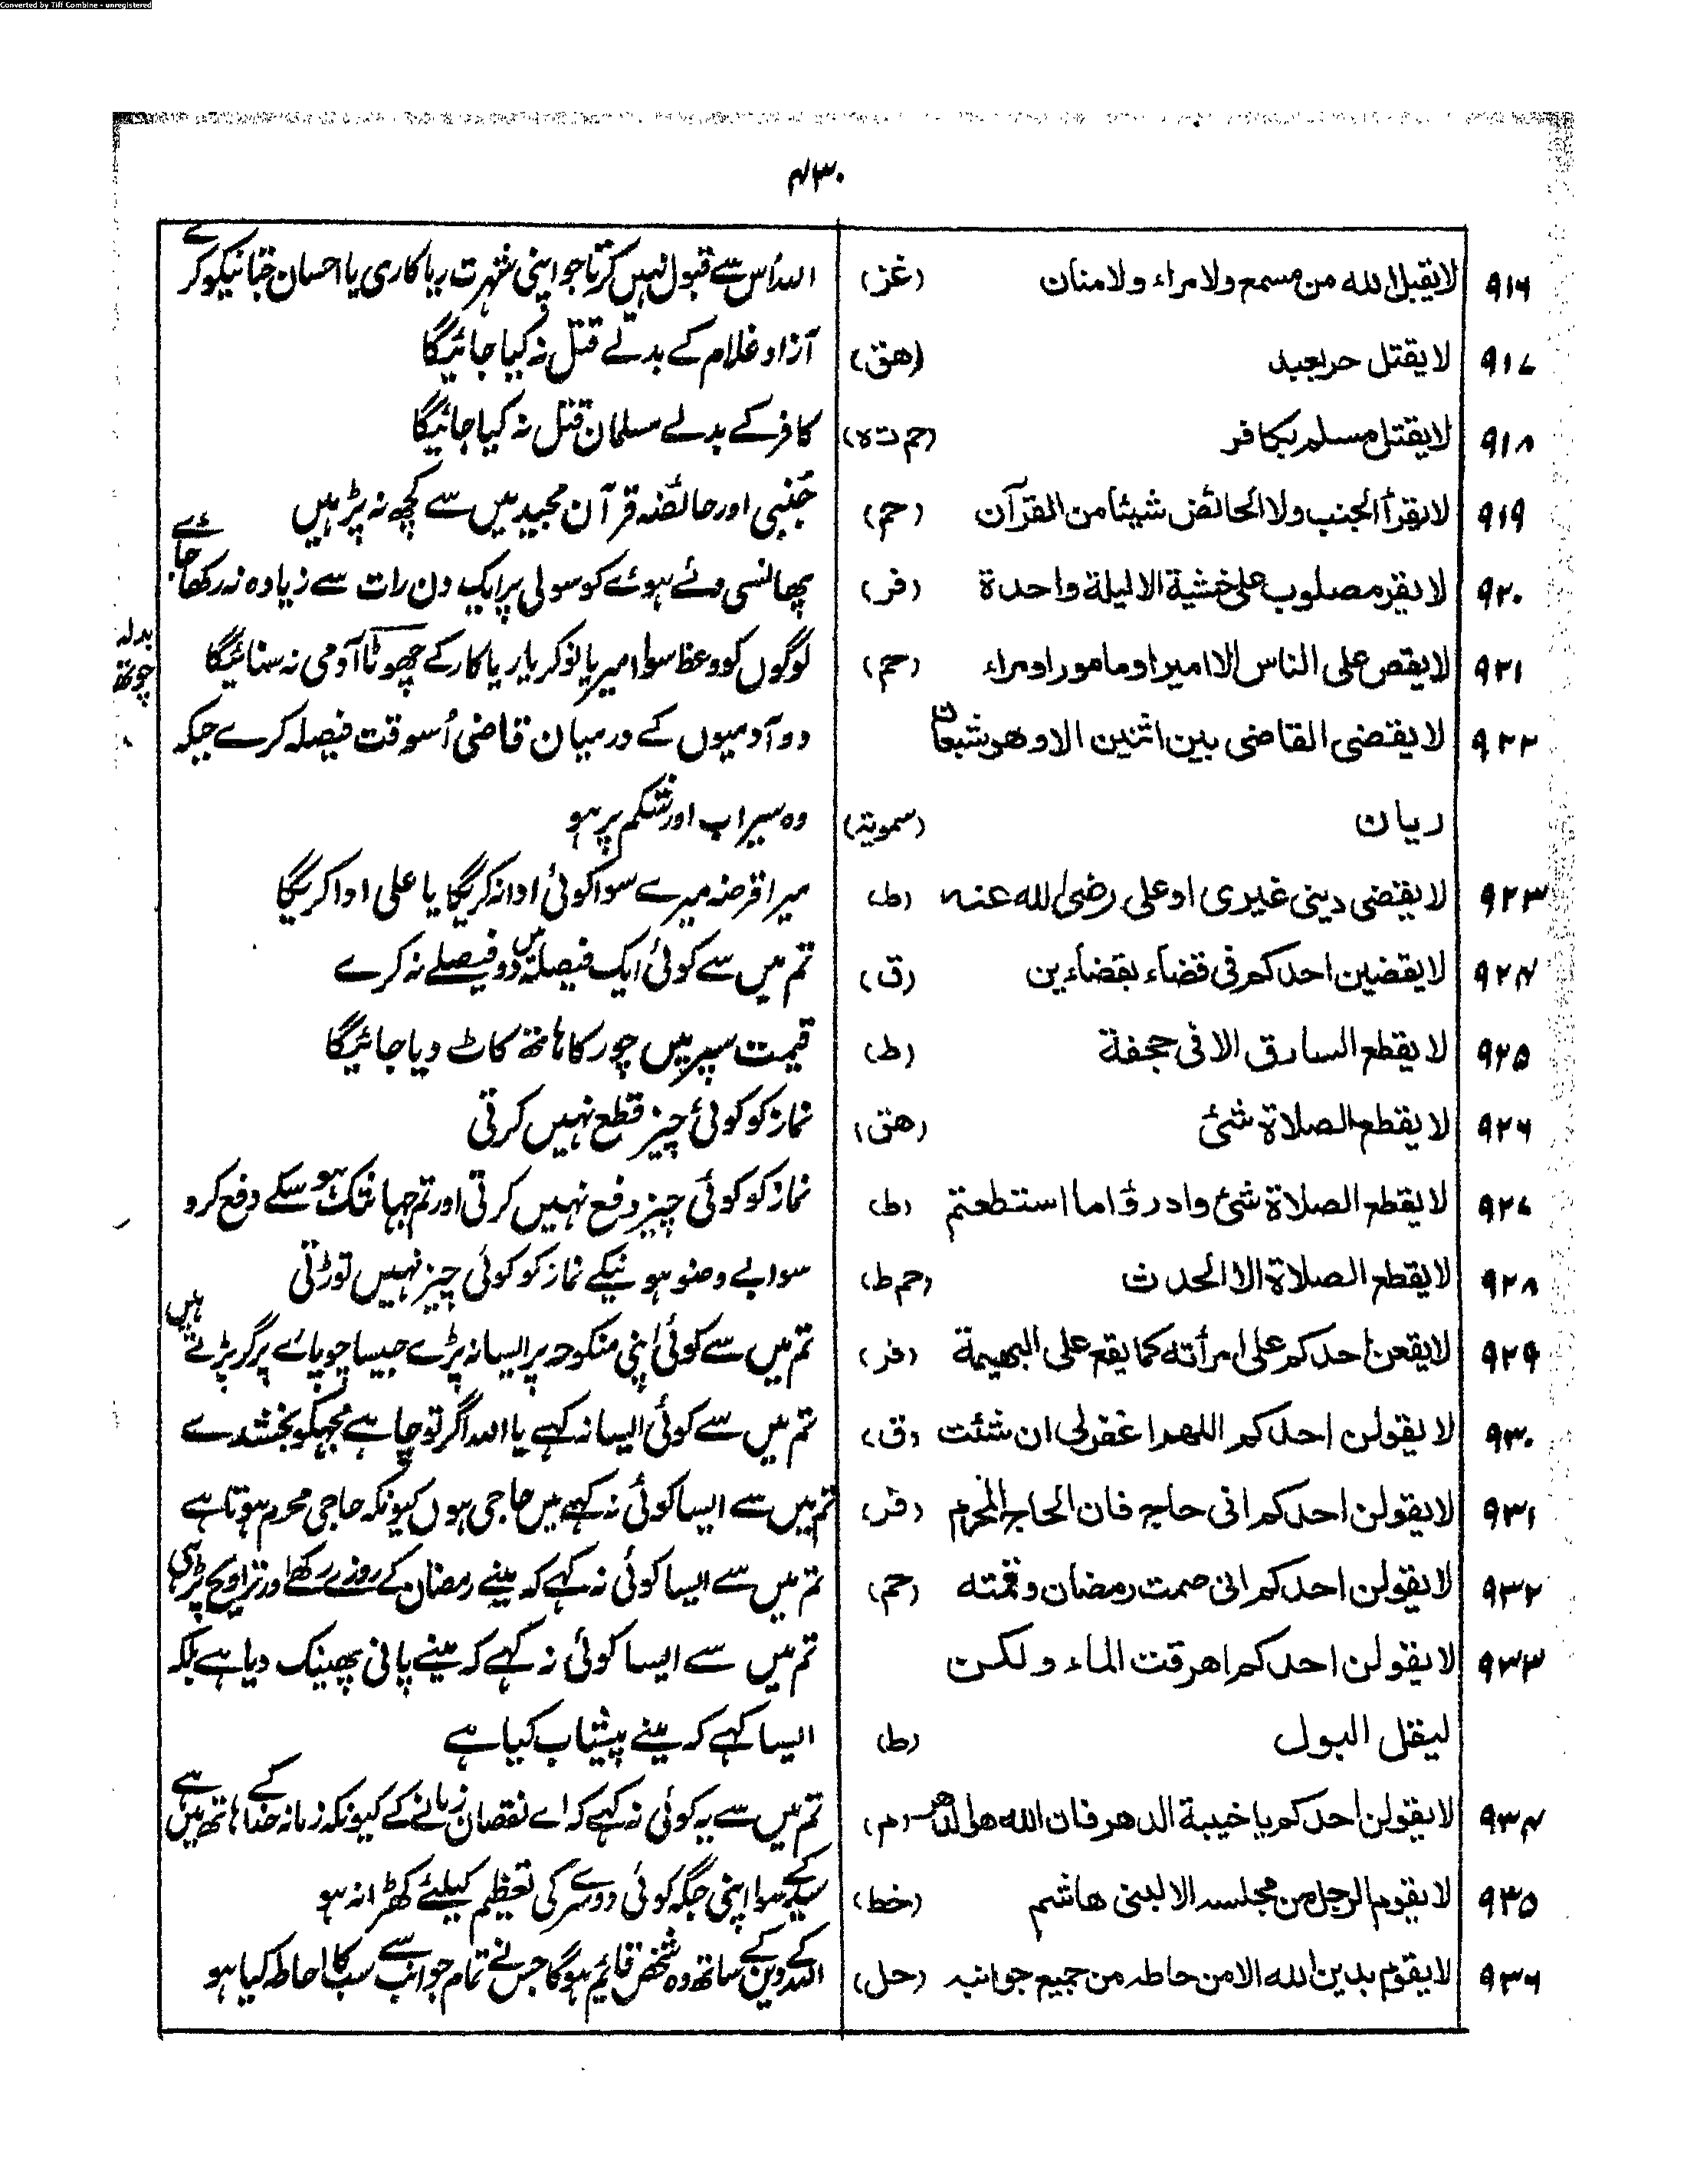 Converted by Tiff Combine - unregistered
۴۳۰
۹۱۶ لا يقبل الله من مسمع ولا مراء ولا منان (غز) اللہ اُس سے قبول نہیں کرتا جو اپنی شہرت ریا کاری یا احسان جتانیکو کرے
۹۱۷ لا يقتل حر بعبد (هق) آزاد غلام کے بدلے قتل نہ کیا جائیگا
۹۱۸ لا يقتل مسلم بكافر (حم ت ه) کافر کے بدلے مسلمان قتل نہ کیا جائیگا
۹۱۹ لا يقرأ الجنب ولا الحائض شيئا من القرآن (حم) جُنبی اور حائضہ قرآن مجید میں سے کچھ نہ پڑہیں
۹۲۰ لا يقر مصلوب على خشبة الا ليلة واحدة (فر) پھانسی دئے ہوئے کو سولی پر ایک دن رات سے زیادہ نہ رکھا جائے
۹۲۱ لا يقص على الناس الا امير او مامور او مراء (حم) لوگوں کو وعظ سوا امیر یا نوکر یا ریاکار کے چھوٹا آدمی نہ سنائیگا
بدلہ
چوتھ
۹۲۲ لا يقضى القاضى بين اثنين الا وهو شبعان دو آدمیوں کے درمیان قاضی اُسوقت فیصلہ کرے جبکہ
ريان (سمويه) وہ سیراب اور شکم پر ہو
۹۲۳ لا يقضى دينى غيرى او على رضى الله عنه (ط) میرا قرضہ میرے سوا کوئی ادا نہ کریگا یا علی ادا کریگا
۹۲۴ لا يقضين احدكم فى قضاء بقضاءين (ق) تم میں سے کوئی ایک فیصلہ میں دو فیصلے نہ کرے
۹۲۵ لا يقطع السارق الا فى حجفة (ط) قیمت سپر میں چور کا ہاتھ کاٹ دیا جائیگا
۹۲۶ لا يقطع الصلاة شئ (هق) نماز کو کوئی چیز قطع نہیں کرتی
۹۲۷ لا يقطع الصلاة شئ وادرؤا ما استطعتم (ط) نماز کو کوئی چیز دفع نہیں کرتی اور تم جہانتک ہو سکے دفع کرو
۹۲۸ لا يقطع الصلاة الا الحدث (حم ط) سوا بے وضو ہونیکے نماز کو کوئی چیز نہیں توڑتی
۹۲۹ لا يقعن احدكم على امرأته كما يقع على البهيمة (فر) تم میں سے کوئی اپنی منکوحہ پر ایسا نہ پڑے جیسا چوپائے پر گر پڑتے ہیں
۹۳۰ لا يقولن احدكم اللهم اغفر لى ان شئت (ق) تم میں سے کوئی ایسا نہ کہے یا اللہ اگر تو چاہے مجہکو بخشدے
۹۳۱ لا يقولن احدكم انى حاج فان الحاج المحرم (فر) تم میں سے ایسا کوئی نہ کہے میں حاجی ہوں کیونکہ حاجی محرم ہوتا ہے
۹۳۲ لا يقولن احدكم انى صمت رمضان وقمته (حم) تم میں سے ایسا کوئی نہ کہے کہ مینے رمضان کے روزے رکھے اور تراویح پڑہی
۹۳۳ لا يقولن احدكم اهرقت الماء ولكن تم میں سے ایسا کوئی نہ کہے کہ مینے پانی پھینک دیا ہے بلکہ
ليقل البول (ط) ایسا کہے کہ مینے پیشاب کیا ہے
۹۳۴ لا يقولن احدكم يا خيبة الدهر فان الله هو الدهر (م) تم میں سے یہ کوئی نہ کہے کہ اے نقصان زمانے کے کیونکہ زمانہ خدا کے ہاتھ میں ہے
۹۳۵ لا يقوم الرجل من مجلسه الا لبنى هاشم (خط) سید کے سوا اپنی جگہ کوئی دوسرے کی تعظیم کیلئے کھڑا نہ ہو
۹۳۶ لا يقوم بدين الله الا من حاطه من جميع جوانبه (حل) اللہ کے دین کے ساتھ وہ شخص قائم ہوگا جس نے تمام جوانب سے سب کا احاطہ کیا ہو